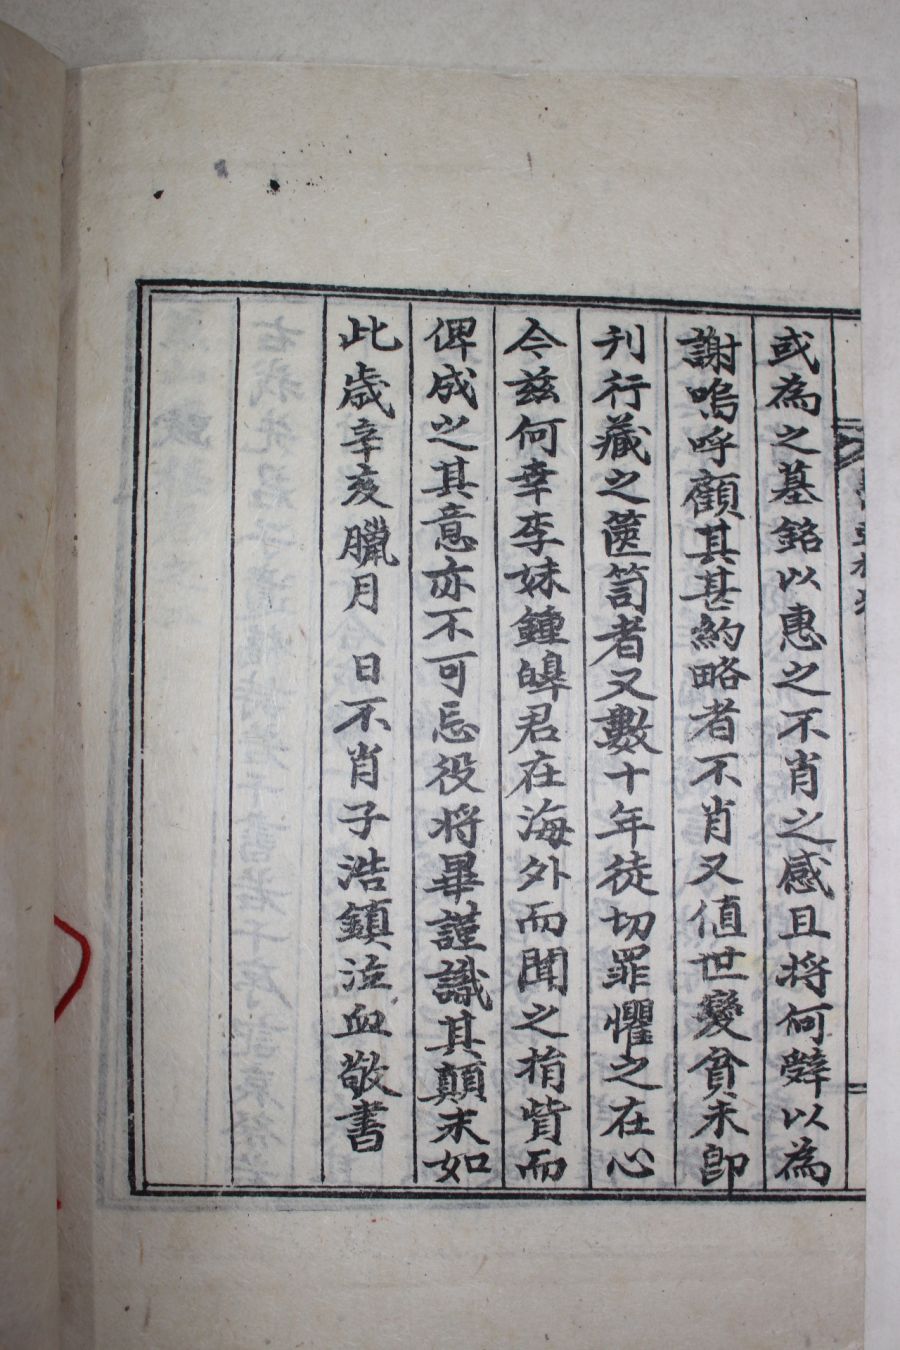 或為之墓銘以惠之不肖之感且将何辭以為
謝嗚呼顧其甚約略者不肖又値世變貧未卽
刋行藏之篋笥者又數十年徒切罪懼之在心
今玆何幸李妹鍾皥君在海外而聞之捐貲而
俾成之其意亦不可忘役将畢謹識其顚末如
此歲辛亥臘月 日不肖子浩鎮泣血敬書